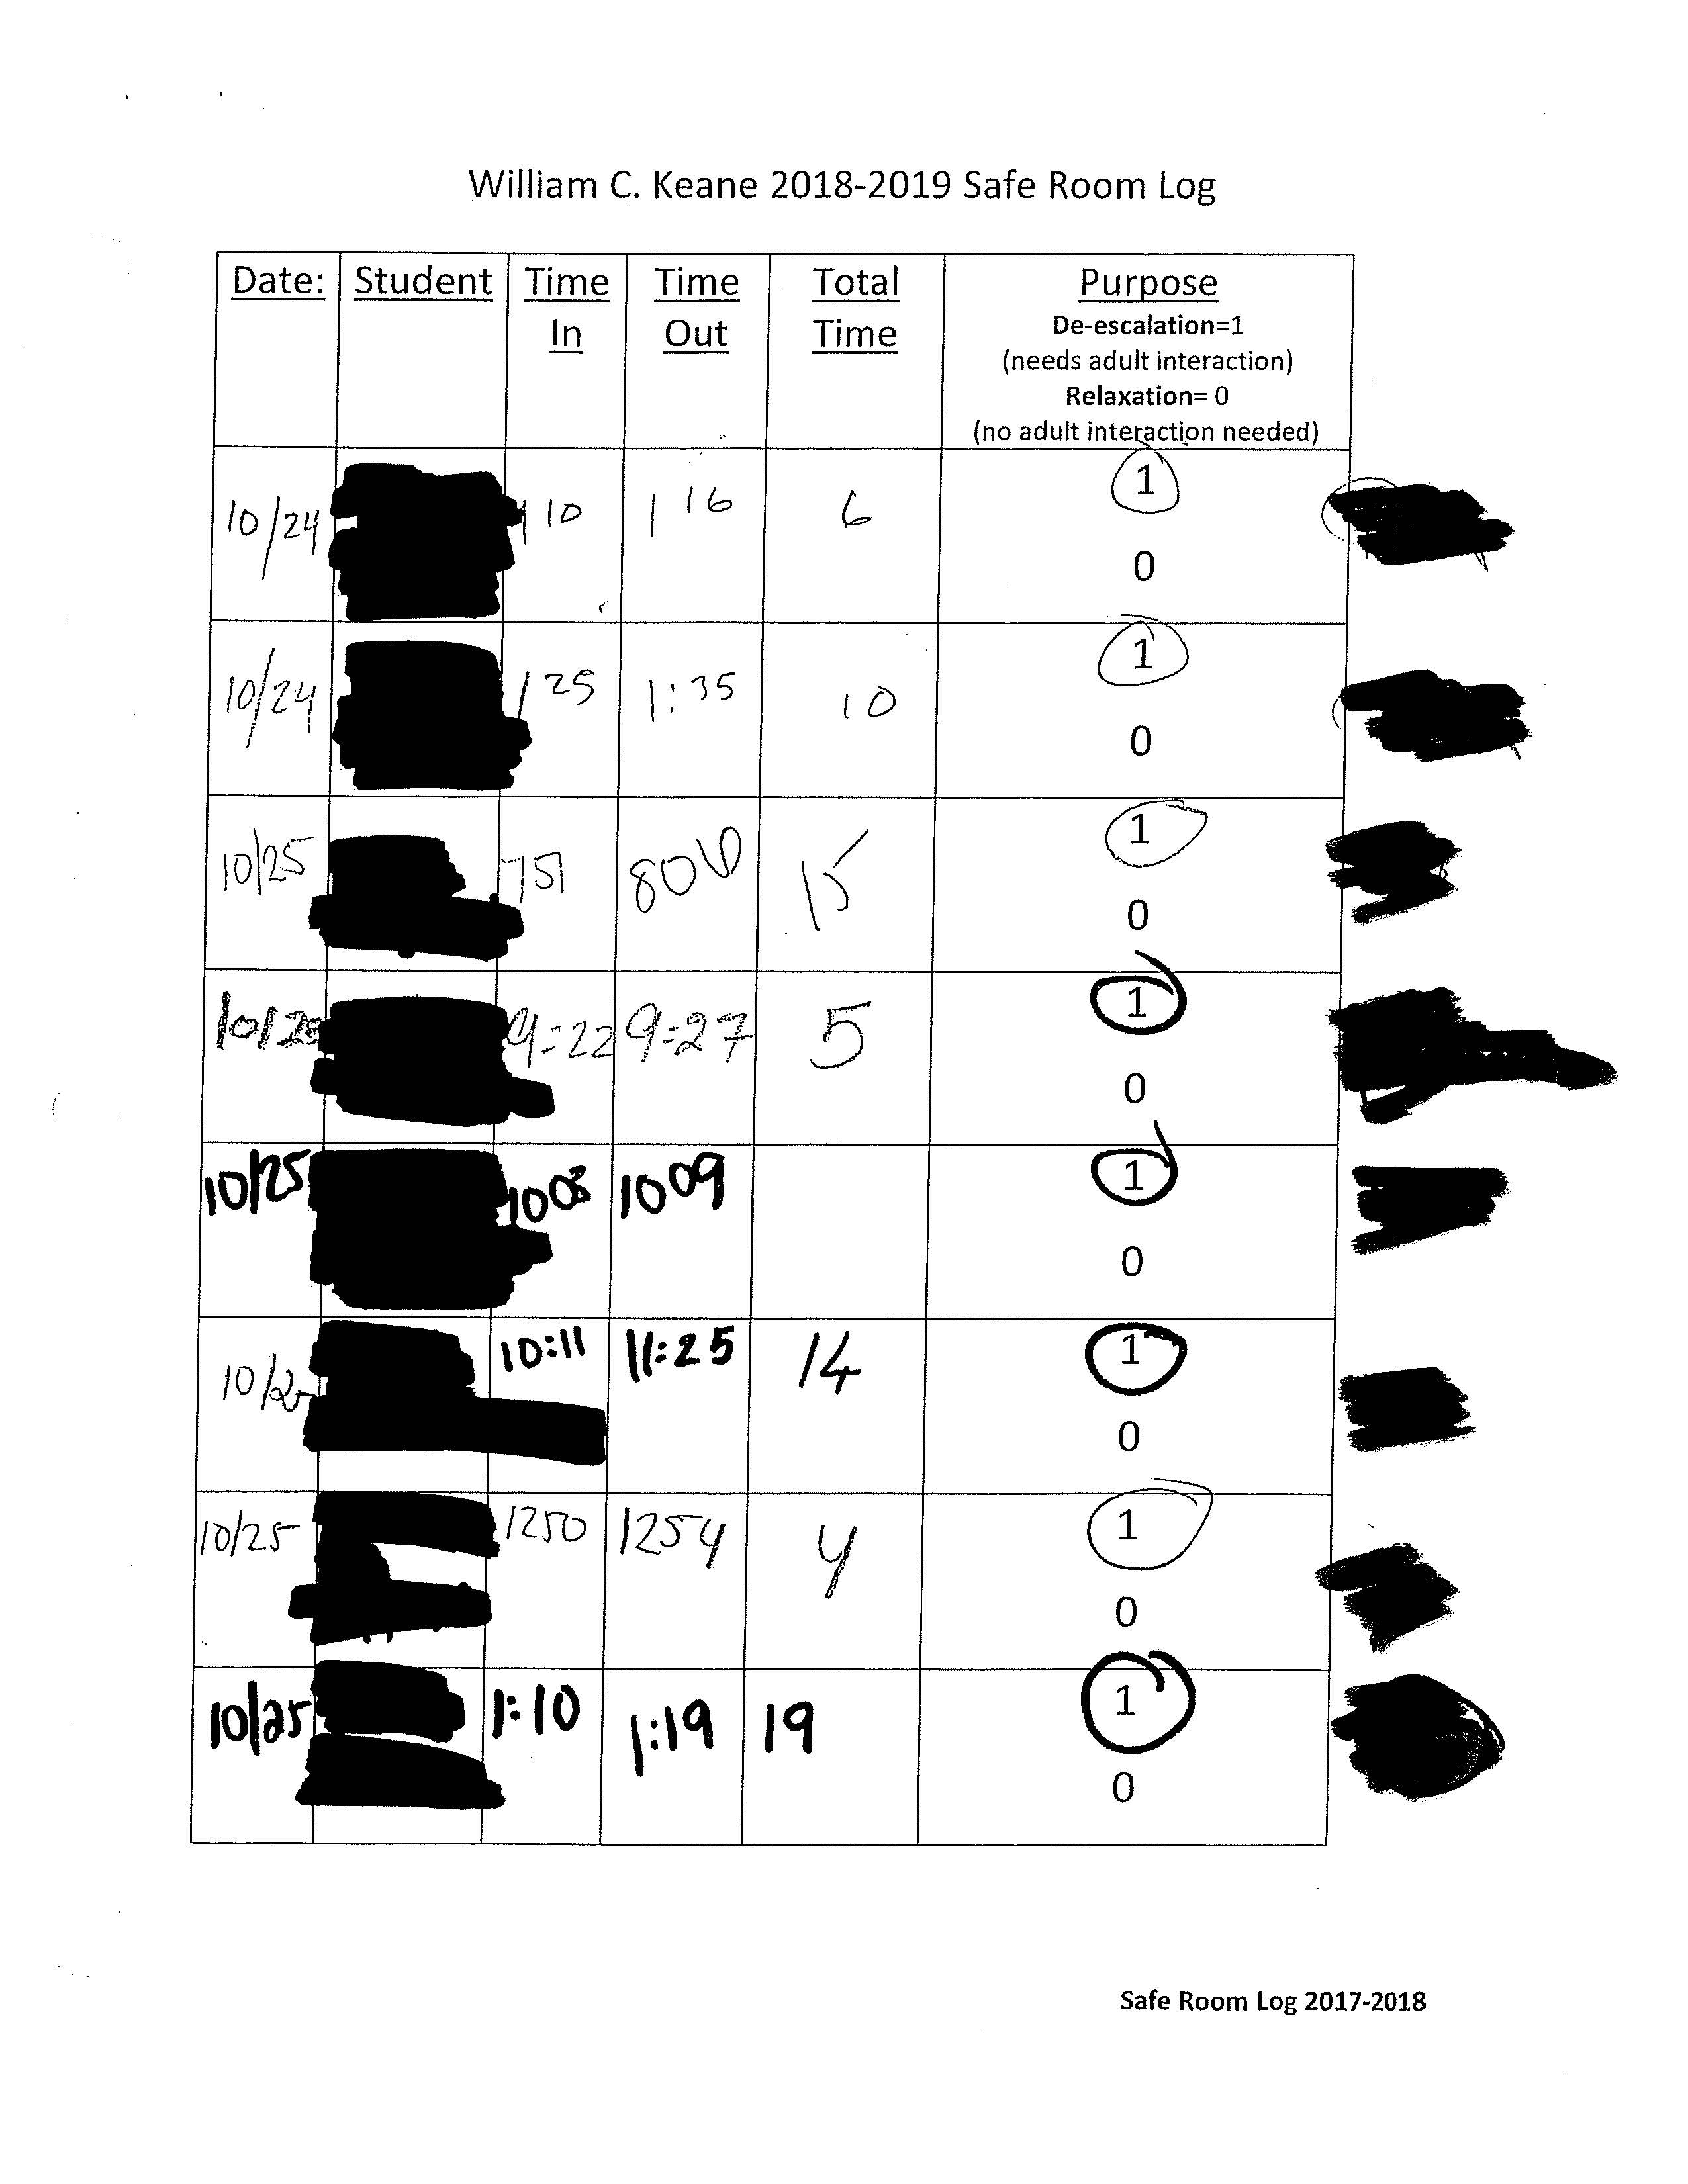 William C. Keane 2018-2019 Safe Room Log
Date: Student Time In Time Out Total Time Purpose
De-escalation=1
(needs adult interaction)
Relaxation= 0
(no adult interaction needed)
10/24 1 10 1 16 6 1
0
10/24 1 25 1:35 10 1
0
10/25 751 806 15 1
0
9:22 9:27 5 1
0
10/25 1008 1009 1
0
10:11 11:25 14 1
0
10/25 1250 1254 4 1
0
10/25 1:10 1:19 19 1
0
Safe Room Log 2017-2018